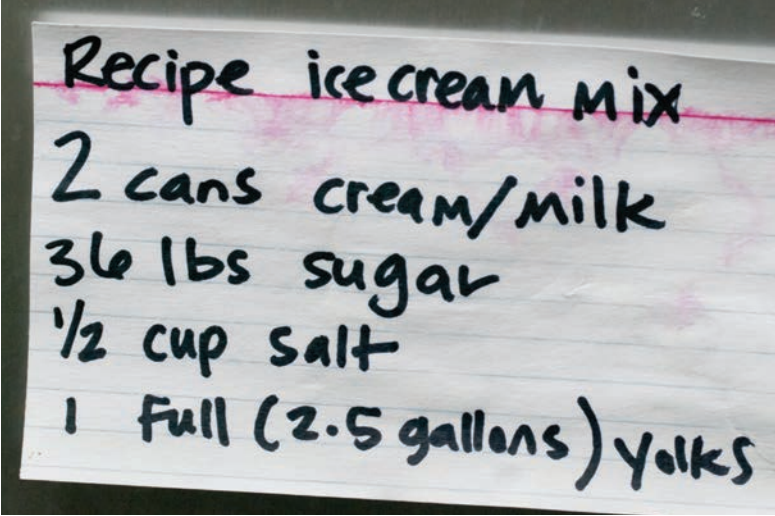 Recipe ice cream mix
2 cans cream/milk
36 lbs sugar
1/2 cup salt
1 Full (2.5 gallons) yolks